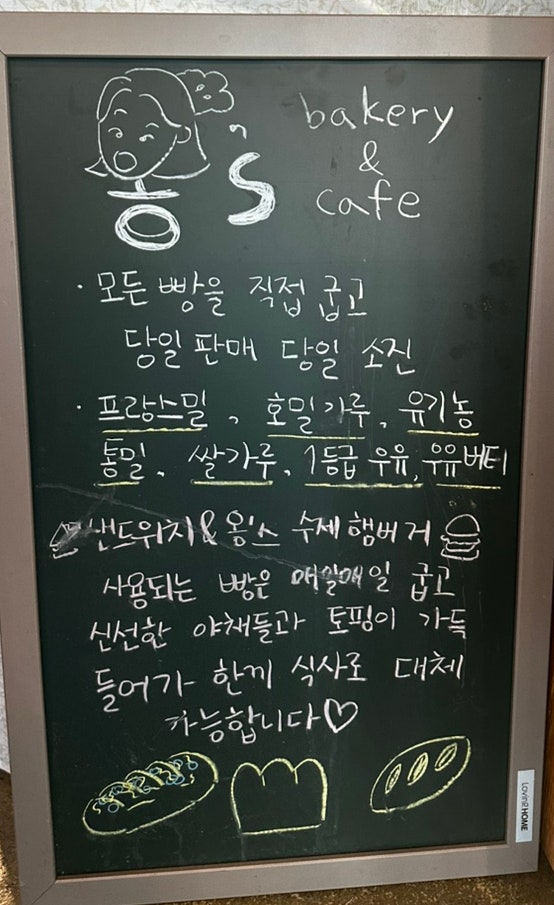 bakery
&
옹's cafe
· 모든 빵을 직접 굽고
당일 판매 당일 소진
· 프랑스밀, 호밀가루, 유기농
통밀, 쌀가루, 1등급 우유, 우유버터
샌드위치&옹's 수제햄버거
사용되는 빵은 매일매일 굽고
신선한 야채들과 토핑이 가득
들어가 한끼 식사로 대체
가능합니다♡
Loving HOME